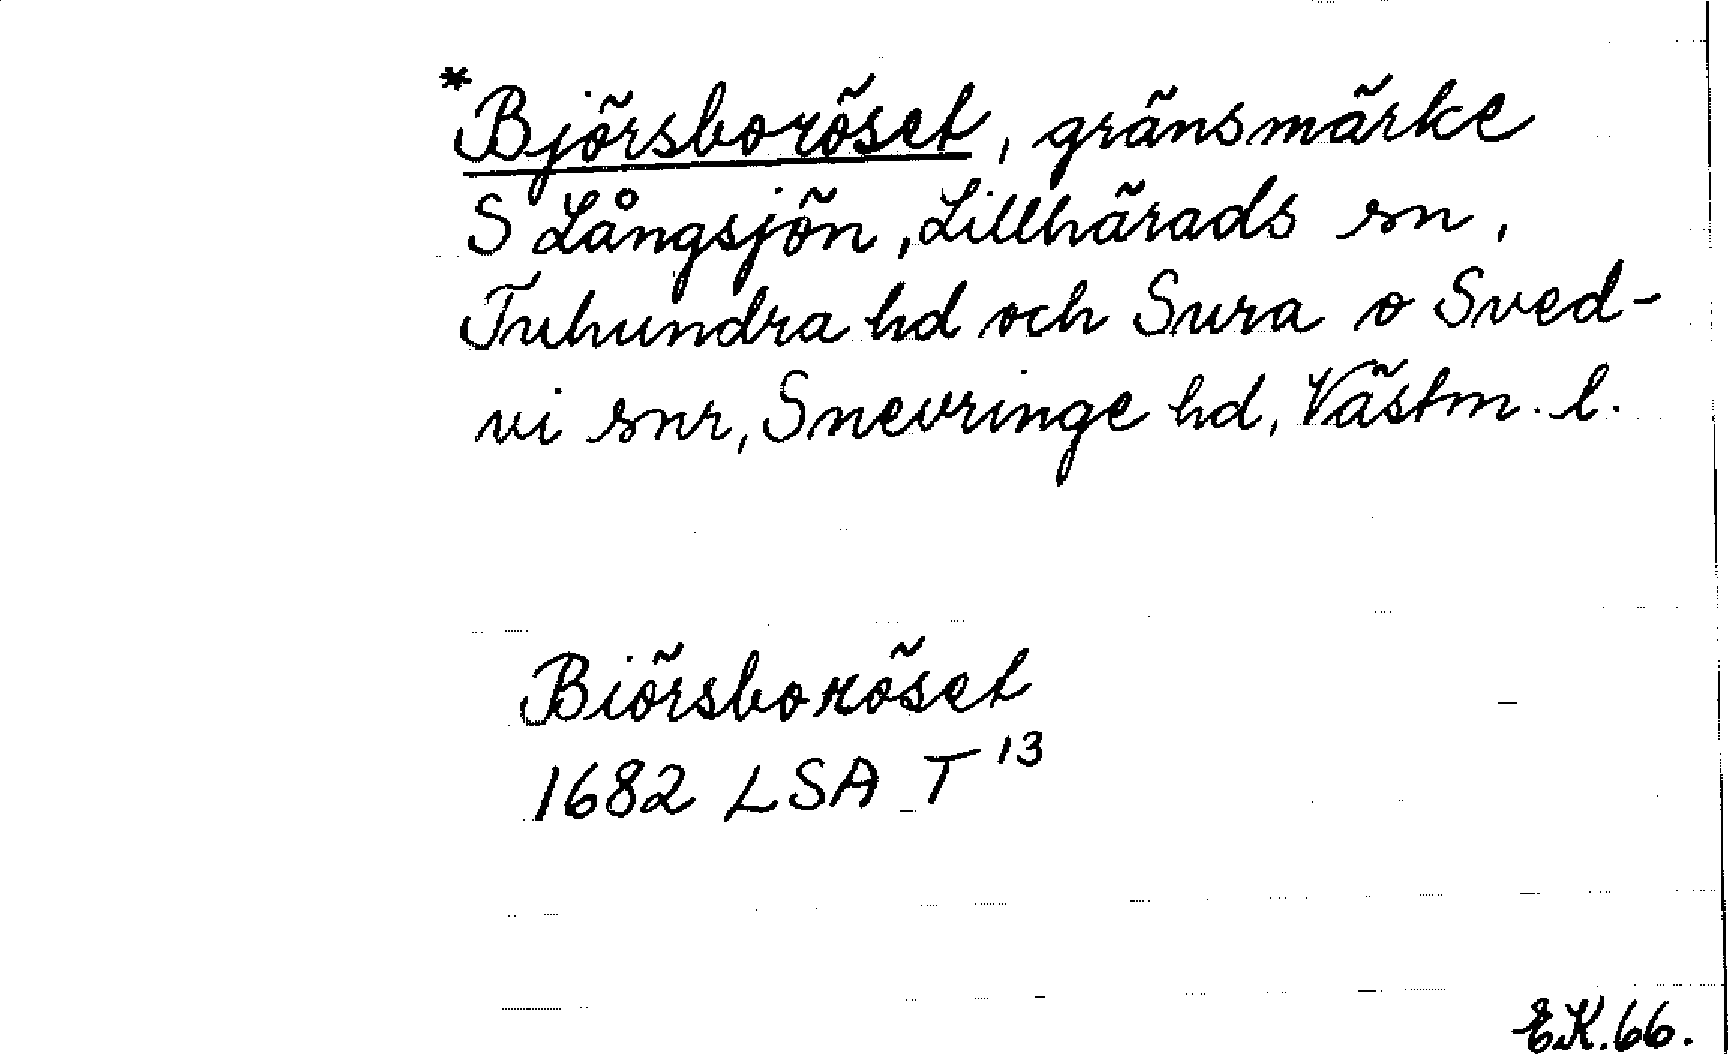 *Björsboröset, gränsmärke
S Långsjön, Lillhärads sn,
Tuhundra hd och Sura o Sved-
vi snr, Snevringe hd, Västm. l.
Biörsboröset
1682 LSA T 13
EK.66.